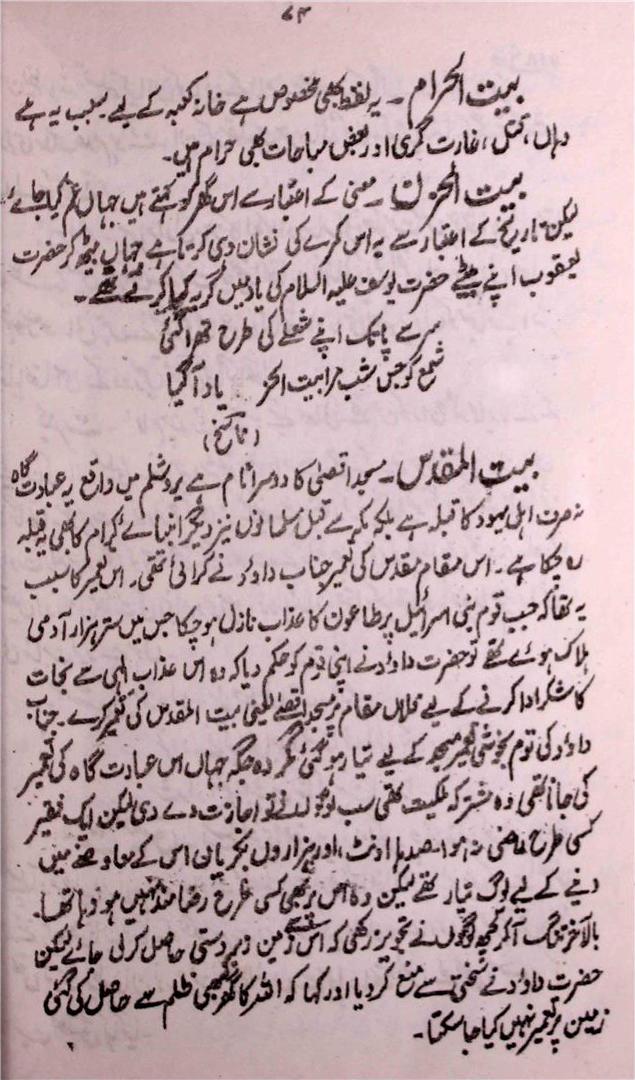 ۶۴
بیت الحرام ۔ یہ لفظ بھی مخصوص ہے خانہ کعبہ کے لیے بسبب یہ ہے
وہاں، قتل، غارت گری اور بعض مباحات بھی حرام ہیں۔
بیت الحزن ۔ معنی کے اعتبار سے اس گھر کو کہتے ہیں جہاں غم کیا جائے
لیکن تاریخ کے اعتبار سے یہ اس کمرے کی نشان دی کرتا ہے جہاں بیٹھ کر حضرت
یعقوب اپنے بیٹے حضرت یوسف علیہ السلام کی یاد میں گریہ کیا کرتے تھے۔
سر سے پا تک اپنے شعلے کی طرح تھرا گئی
شمع کو جس شب مرا بیت الحز یاد آ گیا
(ناسخ)
بیت المقدس ۔ مسجد اقصیٰ کا دوسرا نام ہے یروشلم میں واقع یہ عبادت گاہ
نہ صرف اہل یہود کا قبلہ ہے بلکہ مکہ سے قبل مسلمانوں نیز دیگر انبیائے کرام کا بھی یہ قبلہ
رہ چکا ہے۔ اس مقام مقدس کی تعمیر جناب داؤد نے کرائی تھی۔ اس تعمیر کا سبب
یہ تھا کہ جب قوم بنی اسرائیل پر طاعون کا عذاب نازل ہو چکا جس میں ستر ہزار آدمی
ہلاک ہوئے تھے تو حضرت داؤد نے اپنی قوم کو حکم دیا کہ وہ اس عذاب الٰہی سے نجات
کا شکر ادا کرنے کے لیے فلاں مقام پر مسجد اقصےٰ یعنی بیت المقدس کی تعمیر کرے۔ جناب
داؤد کی قوم بخوشی تعمیر مسجد کے لیے تیار ہو گئی مگر وہ جگہ جہاں اس عبادت گاہ کی تعمیر
کی جانا تھی وہ مشترکہ ملکیت تھی سب لوگوں نے تو اجازت دے دی لیکن ایک فقیر
کسی طرح راضی نہ ہوا۔ صدہا اونٹ، اور ہزاروں بکریاں اس کے معاوضے میں
دینے کے لیے لوگ تیار تھے لیکن وہ اس پر بھی کسی طرح رضامند نہیں ہو رہا تھا۔
بالآخر تنگ آ کر کچھ لوگوں نے تجویز رکھی کہ اس سے زمین زبردستی حاصل کر لی جائے لیکن
حضرت داؤد نے سختی سے منع کر دیا اور کہا کہ اللہ کا گھر کبھی ظلم سے حاصل کی گئی
زمین پر تعمیر نہیں کیا جا سکتا۔